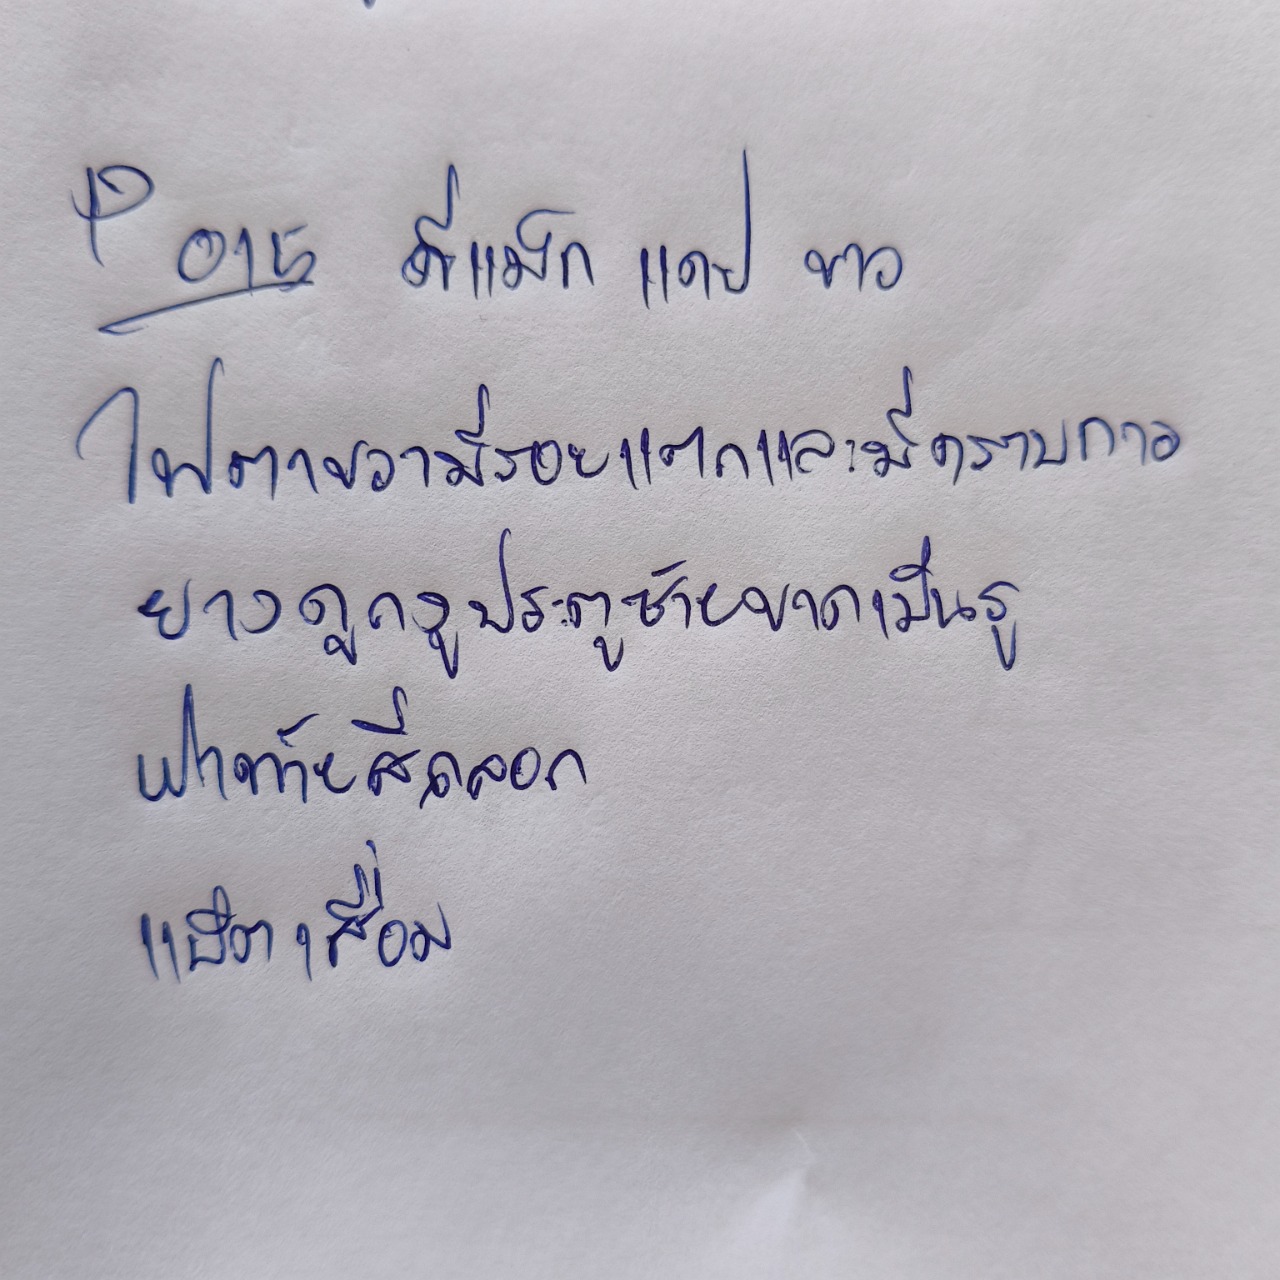 P015 ดีแม็ก แคป ขาว
ไฟตาขวามีรอยแตกและมีคราบกาว
ยางดูกงูประตูซ้ายขาดเป็นรู
ฝาท้ายสีถลอก
แบ็ตเสื่อม